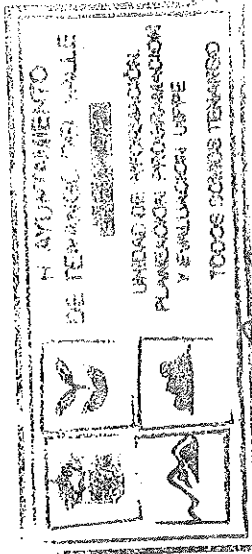 H. AYUNTAMIENTO
DE TENANGO DEL VALLE
UNIDAD DE INFORMACIÓN,
PLANEACIÓN, PROGRAMACIÓN
Y EVALUACIÓN UIPPE
TODOS SOMOS TENANGO